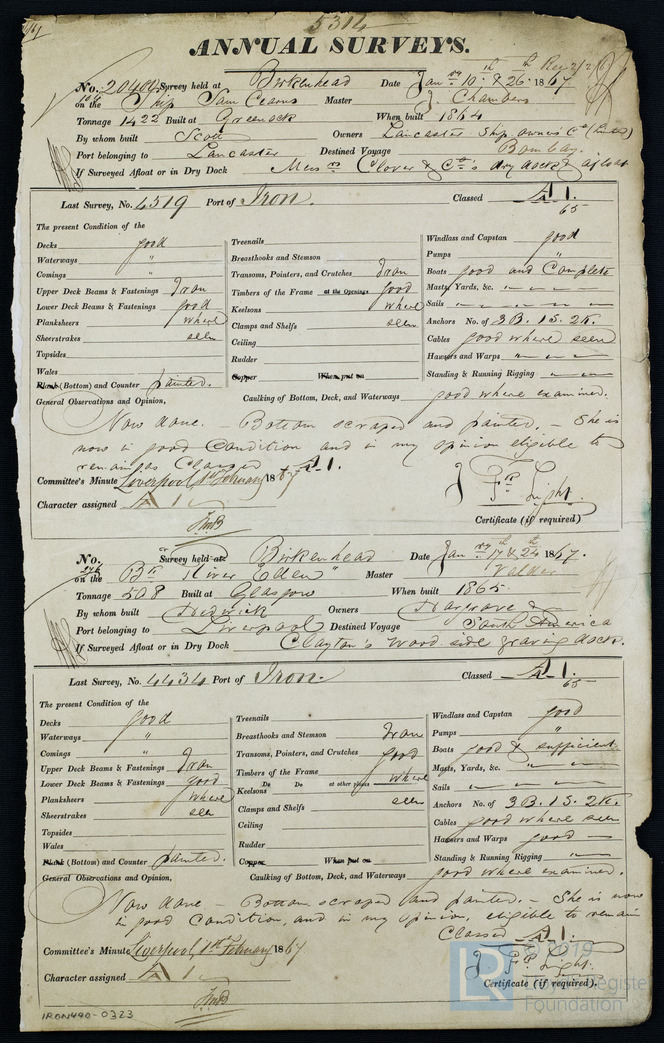 5314
ANNUAL SURVEYS.
No. 20404 Survey held at Birkenhead Date Jan.ry 10th & 26th 1867
on the Ship Sam Cearns Master J. Chambers
Tonnage 1422 Built at Greenock When built 1864
By whom built Scott Owners Lancaster Ship owners Co (Limited)
Port belonging to Lancaster Destined Voyage Bombay.
If Surveyed Afloat or in Dry Dock Messrs Clover & Co's dry dock & afloat
Last Survey, No. 4519 Port of Iron. Classed A 1.
65
The present Condition of the
Decks good
Waterways "
Comings "
Upper Deck Beams & Fastenings Iron
Lower Deck Beams & Fastenings good
Planksheers where
Sheerstrakes seen
Topsides
Wales
Plank (Bottom) and Counter painted.
Treenails
Breasthooks and Stemson
Transoms, Pointers, and Crutches Iron
Timbers of the Frame at the Openings good
Keelsons where
Clamps and Shelfs seen
Ceiling
Rudder
Copper When put on
Windlass and Capstan good
Pumps "
Boats good and Complete
Masts, Yards, &c. " "
Sails "
Anchors No. of 3 B. 1 S. 2 K.
Cables good where seen
Hawsers and Warps "
Standing & Running Rigging "
General Observations and Opinion, Caulking of Bottom, Deck, and Waterways good where examined.
Now done. - Bottom scraped and painted. - She is
now in good Condition and in my opinion eligible to
remain as Classed A 1.
Committee's Minute Liverpool, 1st February 1867
Character assigned A 1
J. Fr. Light.
Certificate (if required)
No. Survey held at Birkenhead Date Jan.ry 17th & 24th 1867.
on the Bk "River Eden" Master
Tonnage 508 Built at Glasgow When built 1865
By whom built Owners Hargrove &
Port belonging to Liverpool Destined Voyage South America
If Surveyed Afloat or in Dry Dock Clayton's wood side graving dock.
Last Survey, No. 4434 Port of Iron. Classed A 1.
65
The present Condition of the
Decks good
Waterways "
Comings "
Upper Deck Beams & Fastenings Iron
Lower Deck Beams & Fastenings good
Planksheers where
Sheerstrakes seen
Topsides
Wales
Plank (Bottom) and Counter painted.
Treenails
Breasthooks and Stemson Iron
Transoms, Pointers, and Crutches good
Timbers of the Frame where
Do Do at other places
Keelsons seen
Clamps and Shelfs
Ceiling
Rudder
Copper When put on
Windlass and Capstan good
Pumps "
Boats good & sufficient
Masts, Yards, &c. "
Sails "
Anchors No. of 3 B. 1 S. 2 K.
Cables good where seen
Hawsers and Warps good
Standing & Running Rigging "
General Observations and Opinion, Caulking of Bottom, Deck, and Waterways good where examined.
Now done - Bottom scraped and painted. - She is now
in good Condition, and in my opinion, eligible to remain
Classed A 1.
Committee's Minute Liverpool, 1st February 1867.
Character assigned A 1
J. Fr. Light.
Certificate (if required).
IRON490-0323
© 2019
LR Lloyd's Register
Foundation